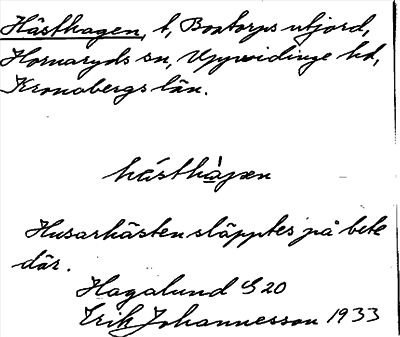 Hästhagen, t, Boatorps utjord,
Hornaryds sn, Uppvidinge hd,
Kronobergs län.
hästhàgen
Husarhästen släpptes på bete
där.
Hagalund S 20
Erik Johannesson 1933